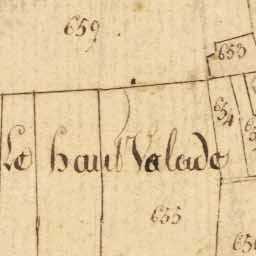 659
653
654
Le haut Valade
655